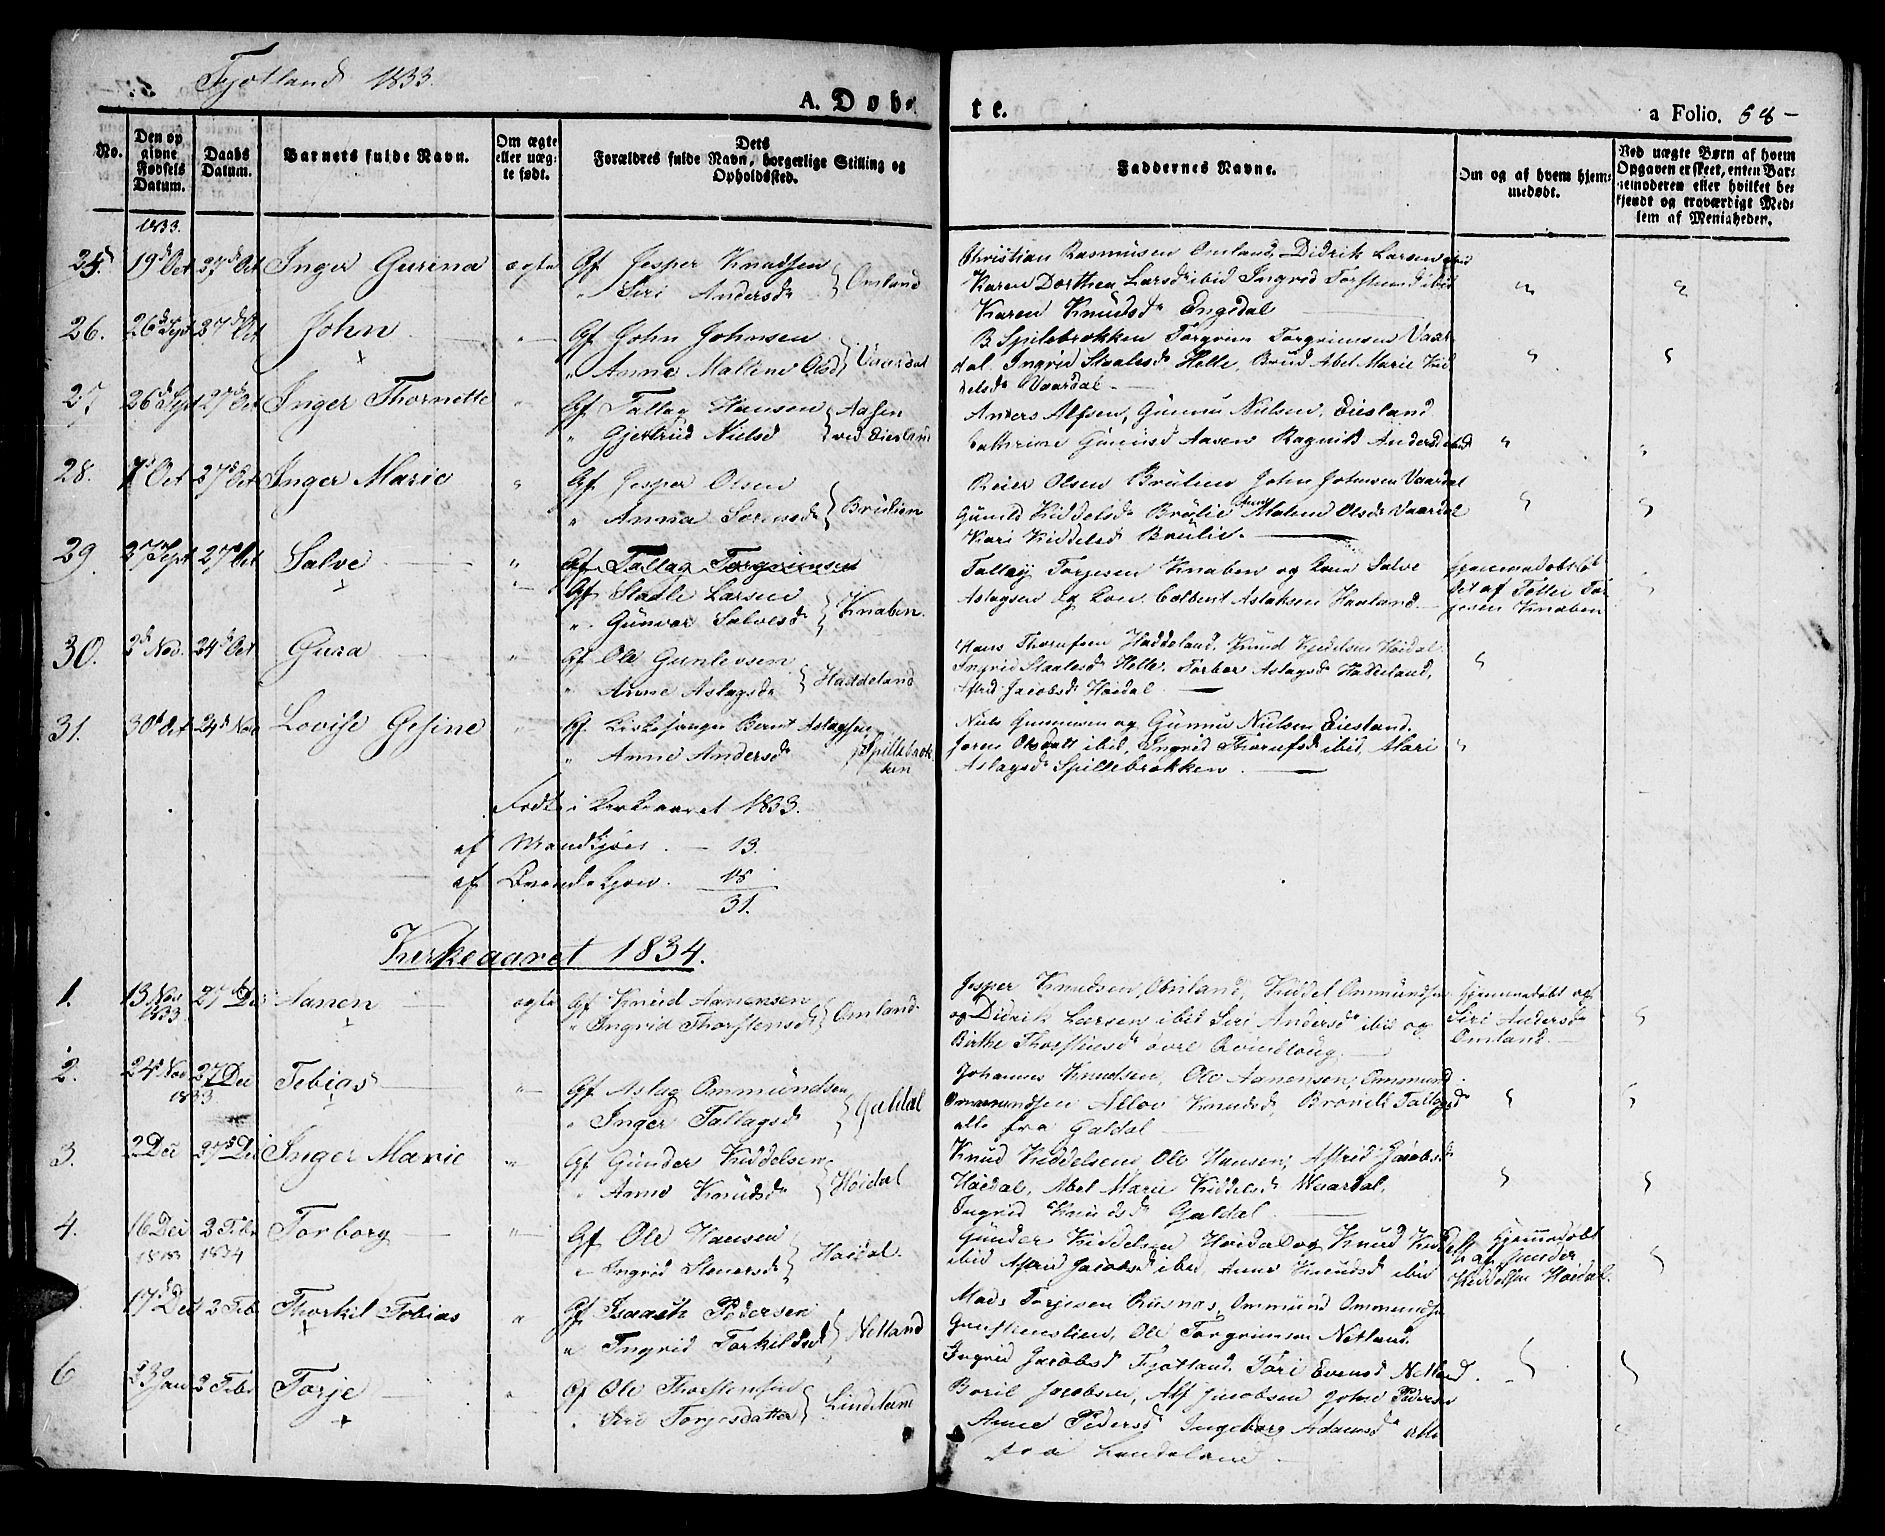 Fjotland 1833.
A. Døbte.
a Folio. 58-
No.
Den opgivne Fødsels Datum.
Daabs Datum.
Barnets fulde Navn.
Om ægte eller uægte født.
Dets Forældres fulde Navn, borgerlige Stilling og Opholdssted.
Faddernes Navne.
Om og af hvem hjemmedøbt.
Ved uægte Børn af hvem Opgaven er skeet, enten Barnemoderen eller hvilket bekjendt og troværdigt Medlem af Menigheden.
1833.
25. 19d Oct 27d Oct Inger Gurina ægte Gf Jesper Knudsen
" Siri Andersd Omland
Christian Rasmusen Omland, Didrik Larsen ibid
Karen Dorthea Larsd ibid Ingrid Torstensd ibid
Karen Knudsd Engedal
26. 26d Sept 27d Oct John " Gf John Johnsen
" Anne Mallene Olsd Vaardal
B Spilebrokken Torgrim Torgrimsen Vaar
dal. Ingrid Staalesd Helle, Abel Marie Kid
delsd Vaardal
27. 26d Sept 27d Oct Inger Thornette " Gf Tallag Hansen Aasen
" Gjertrud Nielsd ved Eiesland
Anders Alfsen, Gunnu Nielsen, Eiesland
Cathrine Aasen Ragnild Andersd ibid
28. 7d Oct 27d Oct Inger Marie " Gf Jesper Olsen
" Anna Sorensd Brulien
Reier Olsen Brulien John Johnsen Vaardal
Gunild Kiddelsd Brulie Anne Malene Olsd Vaardal
Kari Kiddelsd Brulie.
29. 27 Sept 27d Oct Salve " Gf Tallag Torgrimsen
" Gf Staale Larsen
" Gunvor Salvesd Knaben.
Tallag Torjesen Knaben og Kone Salve
Aslagsen og Kone Colbent Aslaksen Haaland
hjemmedøbt
af Tolle Tor
jesen Knaben
30. 2d Nov. 24d Oct Gura " Gf Ole Gunlevsen
" Anne Aslagsd Haddeland
Hans Thornsen Haddeland, Knud Kidelsen Høidal
Ingrid Staalesd Helle. Torbor Aslagsd Haddeland,
Astrid Jacobsd Høidal
31. 30d Oct 24d Nov Lovise Gesine " Gf. Kirkesanger Bernt Aslagsen
" Anne Andersd Spillebrok
ken
Niels Gunnusen og Gunnu Nielsen Eiesland.
Joren Olsdatt ibid, Ingrid ibid, Mari
Aslagsd Spillebrokken
Født i Kirkeaaret 1833.
af Mandkjøn - 13.
af Qvindekjøn. 18
31.
Kirkeaaret 1834.
1. 13 Nov 1833. 27d Dec Aanen ægte Gf Knud Aanensen
" Ingrid Thorstensd Omland
Jesper Knudsen Omland, Kiddel Ommundsen
og Didrik Larsen ibid Siri Andersd ibid og
Birthe Thorstensd øvre Qvindlaug.
Hjemmedøbt af
Siri Andersd
Omland.
2. 24d Nov 1833 27 Dec Tobias " Gf Aslag Ommundsen
" Inger Tallagsd Galdal
Johannes Knudsen, Ole Aanensen, Ommund
Ommundsen Knudsd Tallagsd
alle fra Galdal
3. 2 Dec 27d Dec Inger Marie " Gf Gunder Kiddelsen
" Anne Knudsd Høidal
Knud Kiddelsen, Ole Hansen, Astrid Jacobsd
Høidal, Abel Marie Kiddelsd Vaardal,
Ingrid Knudsd Galdal
4. 16 Dec 1833 2 Febr 1834 Torborg " Gf Ole Hansen
" Ingrid Stenersd Høidal.
Gunder Kiddelsen Høidal og Knud
ibid Astrid Jacobsd ibid, Anne Knudsd ibid
Hjemmedøbt
af Gunder
Kiddelsen Høidal.
17d Dec 2 Feb Thorkil Tobias " Gf Isaach Pedersen
" Ingrid Torkildsd Netland
Mads Torjesen Rusnas, Ommund Ommundsen
Ole Torgrimsen Netland.
Ingrid Jacobsd Fjotland. Siri Evensd Netland.
6 23 Jan 2 Febr Torje " Gf Ole Thorstensen
" Torjesdatter
Boril Jacobsen, Alf Jacobsen John Pedersen
Anne Pedersd Ingeborg Adamsd alle
fra